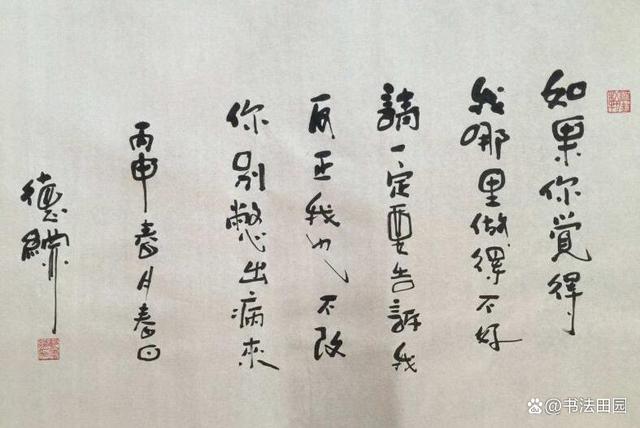 如果你覺得
我哪里做得不好
請一定要告訴我
反正我也不改
你別憋出病來
丙申春月春日
德
书法田园